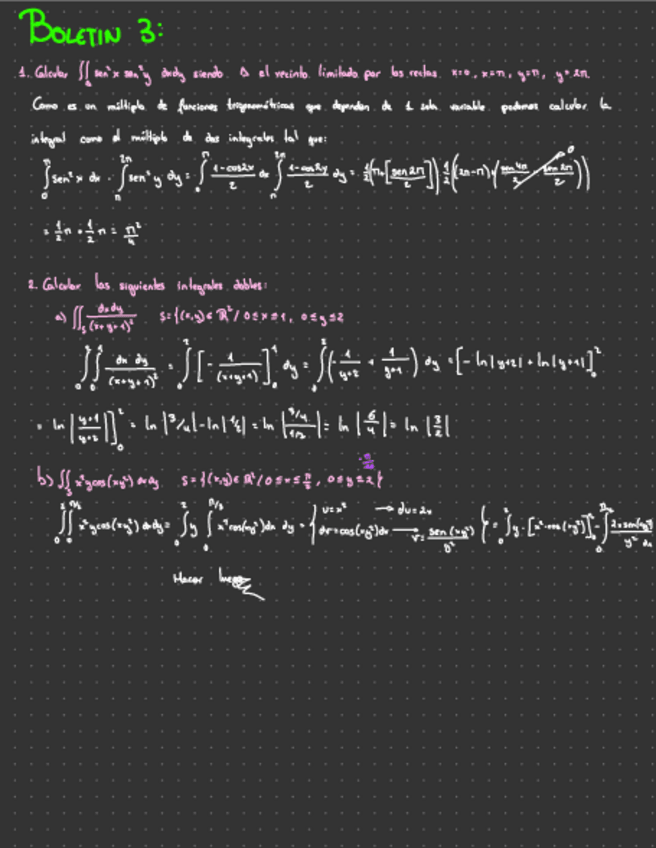 BOLETIN 3:
1. Calcular ∬ sen²x sen²y dxdy siendo D el recinto limitado por las rectas x=0, x=π, y=π, y=2π
Como es un múltiplo de funciones trigonométricas que dependen de 1 sola variable podemos calcular la
integral como el múltiplo de dos integrales tal que:
∫₀^π sen²x dx · ∫_π^2π sen²y dy = ∫₀^π (1-cos2x)/2 dx ∫_π^2π (1-cos2y)/2 dy = 1/2(π-[sen2π/2]) 1/2((2π-π)-(sen4π/2 - sen2π/2)) 0
= 1/2 π · 1/2 π = π²/4
2. Calcular las siguientes integrales dobles:
a) ∬_S dxdy/(x+y+1)² S={(x,y)∈ℝ²/0≤x≤1, 0≤y≤2
∫₀²∫₀¹ dx dy/(x+y+1)² = ∫₀² [-1/(x+y+1)]₀¹ dy = ∫₀² (-1/(y+2) + 1/(y+1)) dy = [-ln|y+2| + ln|y+1|]₀²
= ln|(y+1)/(y+2)|]₀² = ln|3/4|-ln|1/2| = ln|(3/4)/(1/2)| = ln|6/4| = ln|3/2|
b) ∬_S x²ycos(xy²) dxdy S={(x,y)∈ℝ²/0≤x≤π/2, 0≤y≤2}
∫₀²∫₀^π/2 x²ycos(xy²) dxdy = ∫₀² y ∫₀^π/2 x²cos(xy²)dx dy = { u=x² → du=2x
dv=cos(xy²)dx → v=sen(xy²)/y² } = ∫₀² y·[x²
Hacer